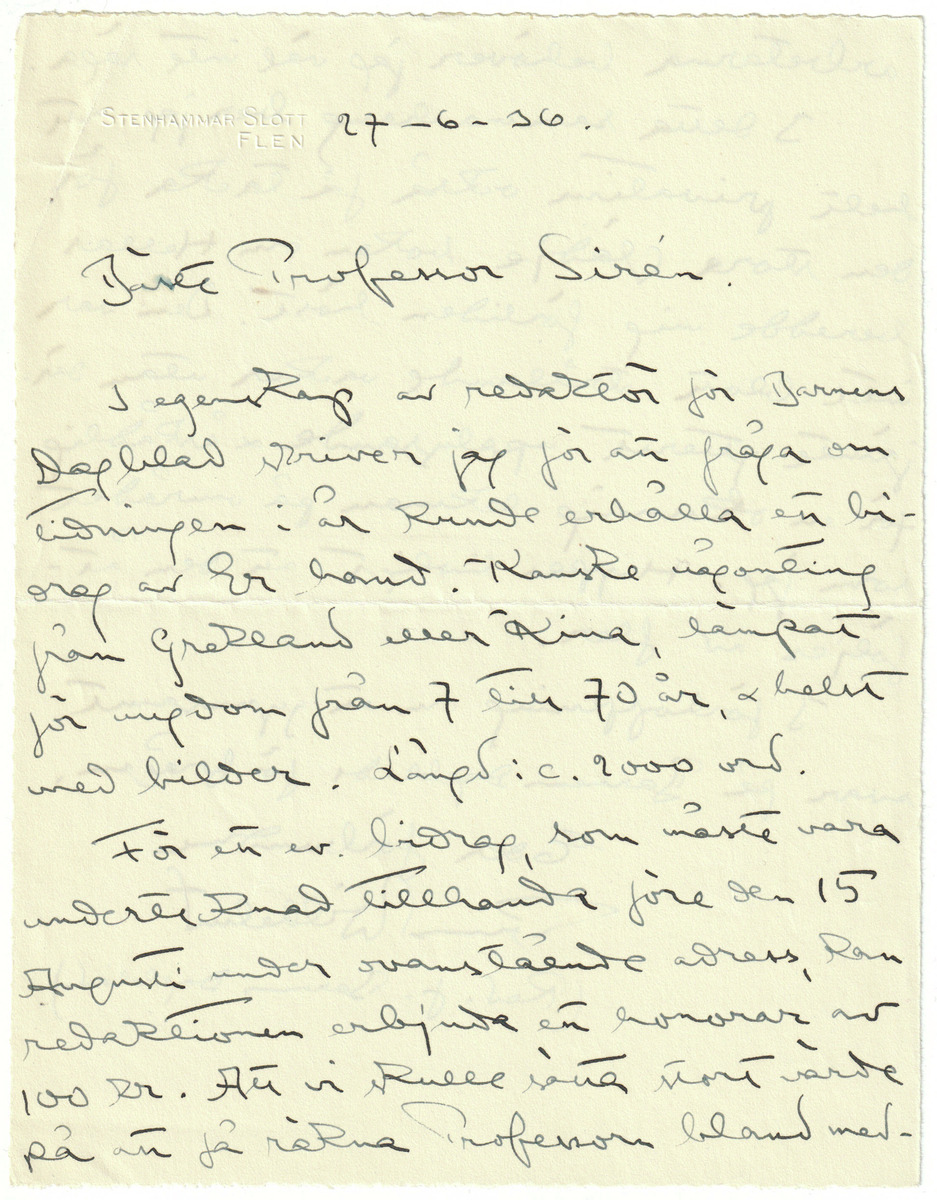 STENHAMMAR SLOTT
FLEN
27-6-36.
Bäste Professor Sirén.
I egenskap av redaktör för Barnens
Dagblad skriver jag för att fråga om
tidningen i år kunde erhålla ett bi-
drag av Er hand. Kanske någonting
från Grekland eller Kina, lämpat
för ungdom från 7 till 70 år, & helst
med bilder. Längd: c. 2000 ord.
För ett ev. bidrag, som måste vara
undertecknad tillhanda före den 15
Augusti under ovanstående adress, kan
redaktionen erbjuda ett honorar av
100 kr. Att vi skulle sätta stort värde
på att få räkna Professorn bland med-